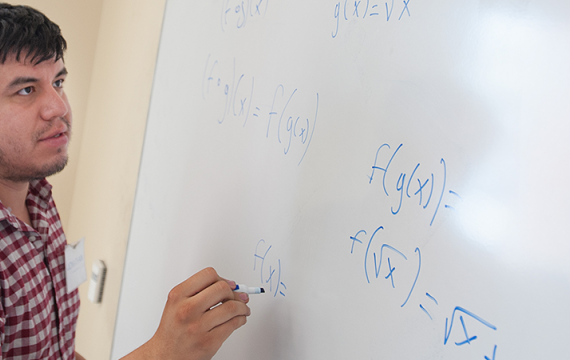 (f∘g)(x)
g(x)=√x
(f∘g)(x)=f(g(x))
f(g(x))=
f(√x)=√x
f(x)=